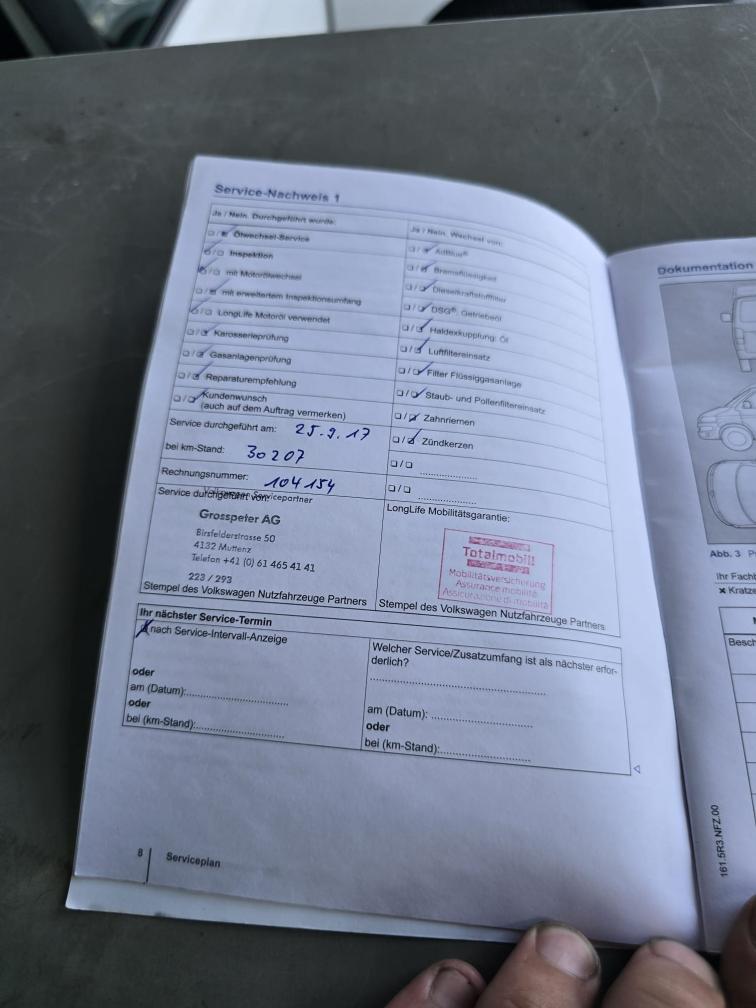 Service-Nachweis 1
Ja / Nein. Durchgeführt wurde:
❑/❑ Ölwechsel-Service
❑/❑ Inspektion
❑/❑ mit Motorölwechsel
❑/❑ mit erweitertem Inspektionsumfang
❑/❑ LongLife Motoröl verwendet
❑/❑ Karosserieprüfung
❑/❑ Gasanlagenprüfung
❑/❑ Reparaturempfehlung
❑/❑ Kundenwunsch
(auch auf dem Auftrag vermerken)
Service durchgeführt am: 25.9.17
bei km-Stand: 30207
Rechnungsnummer: 104154
Service durchgeführt von:
Servicepartner
Grosspeter AG
Birsfelderstrasse 50
4132 Muttenz
Telefon +41 (0) 61 465 41 41
223 / 293
Stempel des Volkswagen Nutzfahrzeuge Partners
Ja / Nein. Wechsel von:
❑/❑ AdBlue®
❑/❑ Bremsflüssigkeit
❑/❑ Dieselkraftstofffilter
❑/❑ DSG®, Getriebeöl
❑/❑ Haldexkupplung: Öl
❑/❑ Luftfiltereinsatz
❑/❑ Filter Flüssiggasanlage
❑/❑ Staub- und Pollenfiltereinsatz
❑/❑ Zahnriemen
❑/❑ Zündkerzen
❑/❑ ....................
❑/❑ ....................
LongLife Mobilitätsgarantie:
Totalmobil!
Mobilitätsversicherung
Assurance mobilité
Assicurazione di mobilità
Stempel des Volkswagen Nutzfahrzeuge Partners
Ihr nächster Service-Termin
nach Service-Intervall-Anzeige
oder
am (Datum):....................
oder
bei (km-Stand):....................
Welcher Service/Zusatzumfang ist als nächster erfor-
derlich?
....................
am (Datum): ....................
oder
bei (km-Stand):....................
8
Serviceplan
Dokumentation
Abb. 3
Ihr Fach
✖ Kratze
Besch
161.5R3.NFZ.00